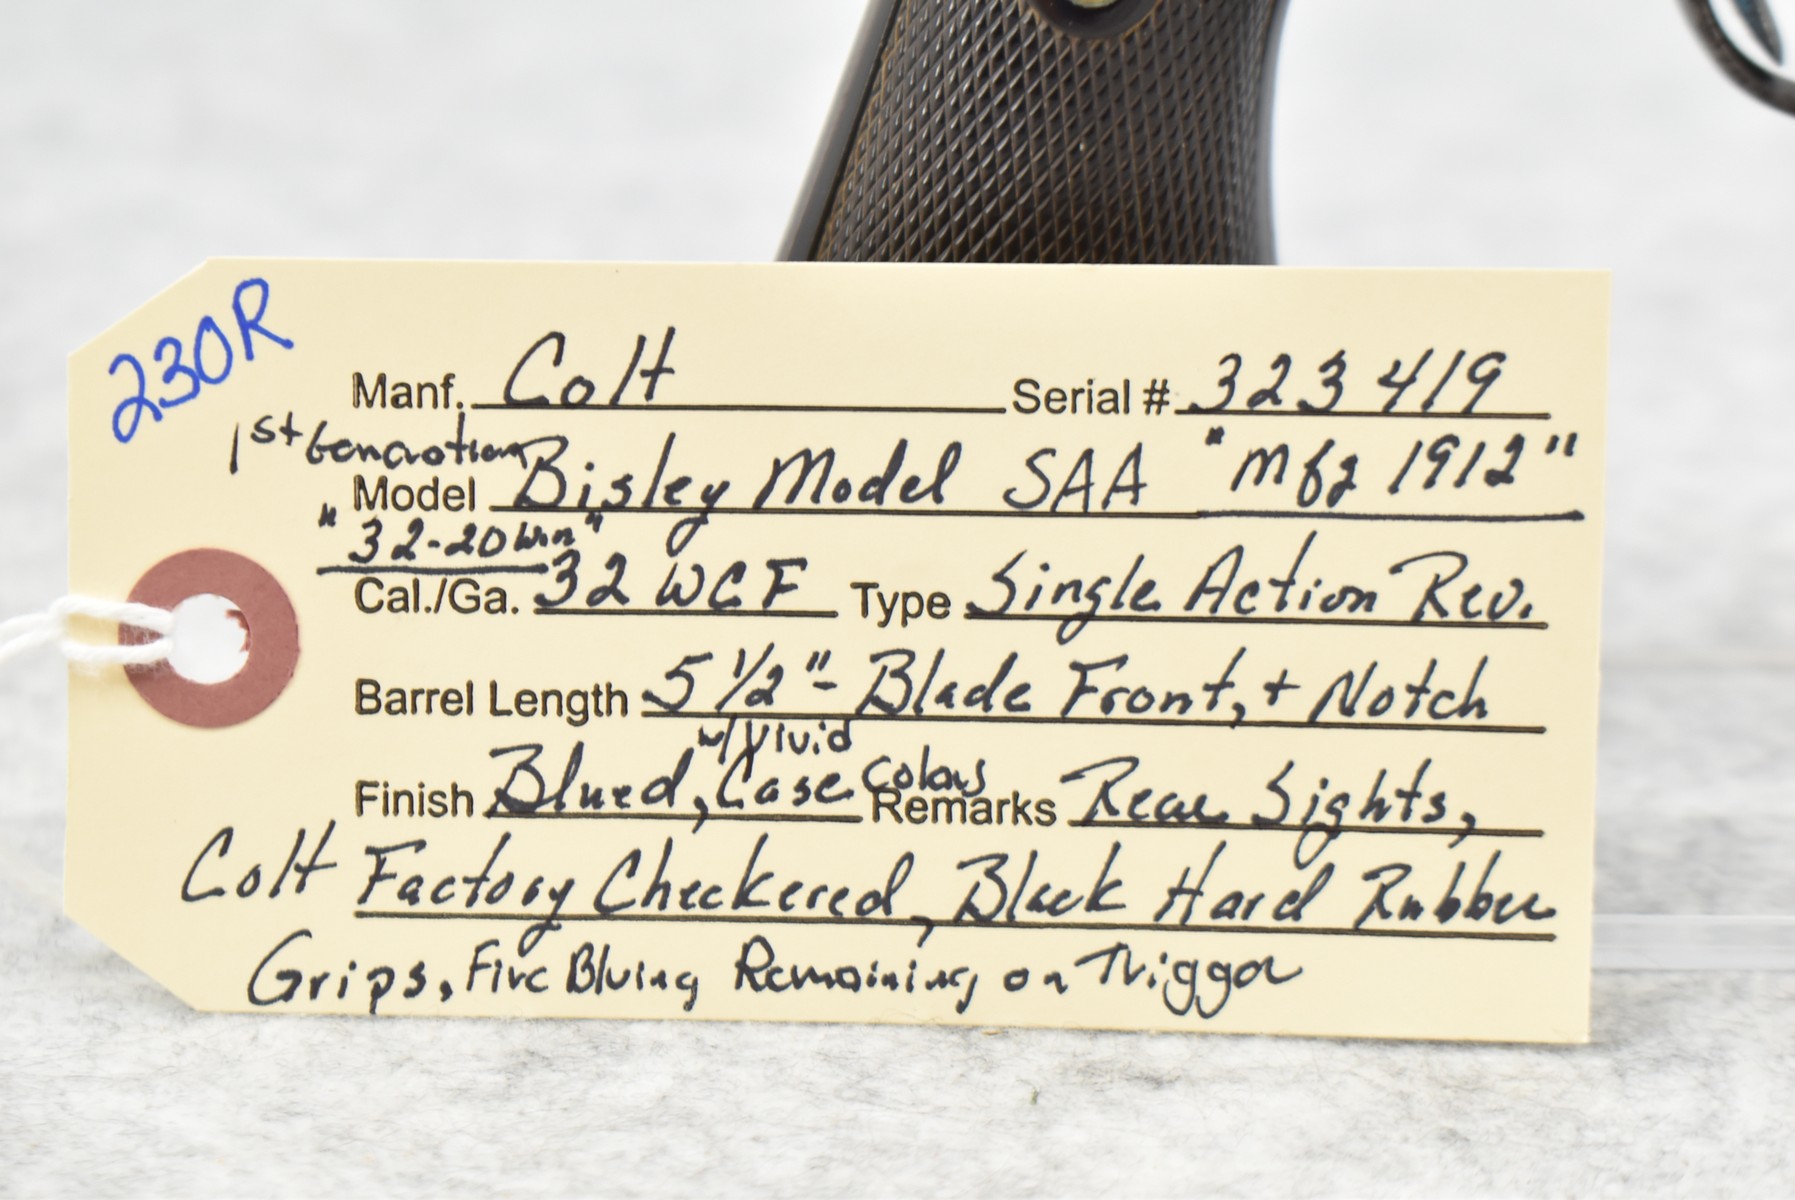 230R
Manf. Colt Serial # 323419
1st Generation
Model Bisley Model SAA "Mfg 1912"
"32-20 Win"
Cal./Ga. 32 WCF Type Single Action Rev.
Barrel Length 5 1/2"- Blade Front, + Notch
w/Vivid
Finish Blued, Case Colors Remarks Rear Sights,
Colt Factory Checkered, Black Hard Rubber
Grips, Fire Bluing Remaining on Trigger